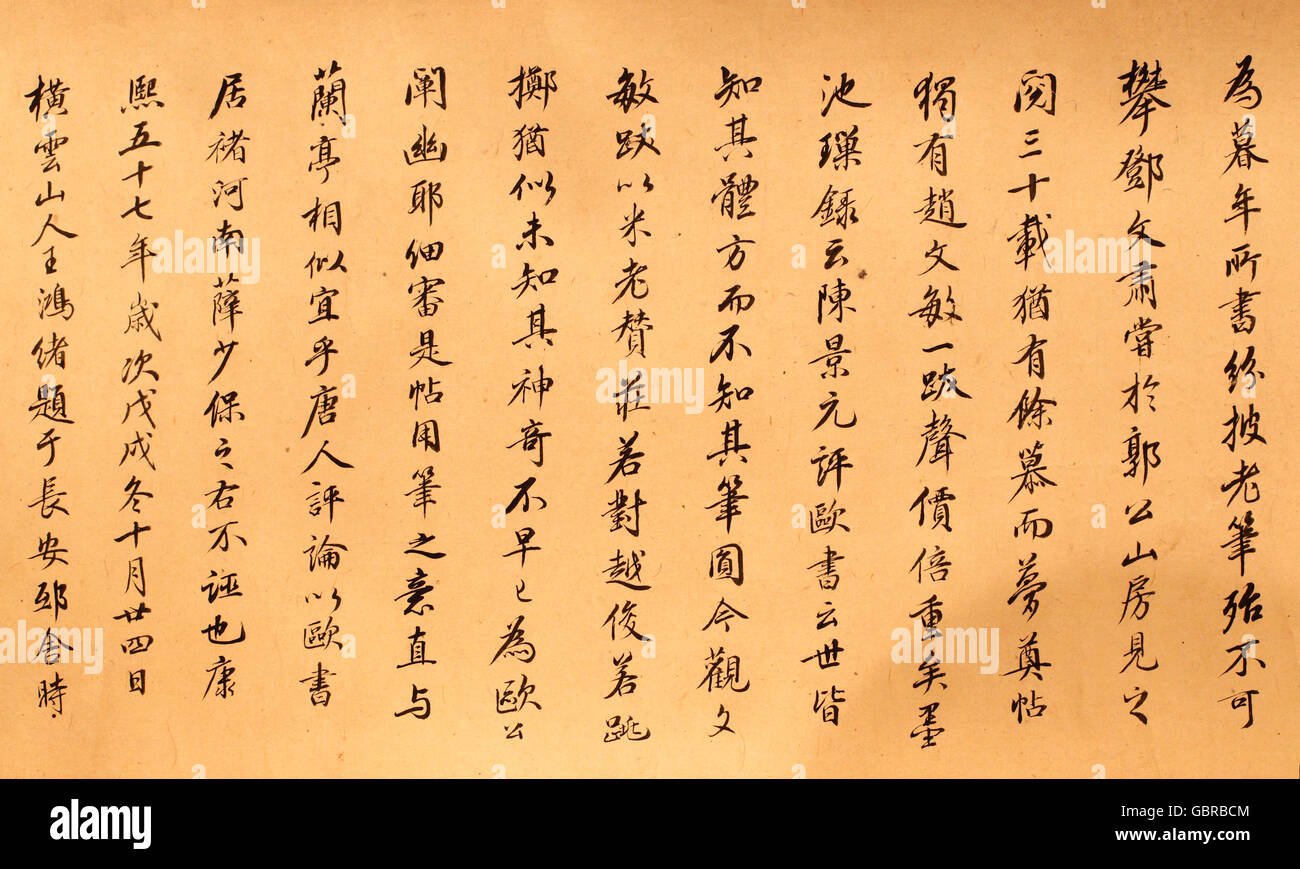 為暮年所書紛披老筆殆不可
攀鄧文肅嘗於郭公山房見之
閱三十載猶有餘慕而夢奠帖
獨有趙文敏一跋聲價倍重矣墨
池璅錄云陳景元評歐書云世皆
知其體方而不知其筆圓今觀文
敏跋以米老贊莊若對越俊若跳
擲猶似未知其神奇不早已為歐公
闡幽耶細審是帖用筆之意直与
蘭亭相似宜乎唐人評論以歐書
居褚河南薛少保之右不誣也康
熙五十七年歲次戊戌冬十月廿四日
橫雲山人王鴻緒題于長安邸舍時
alamy
alamy stock photo
GBRBCM
www.alamy.com